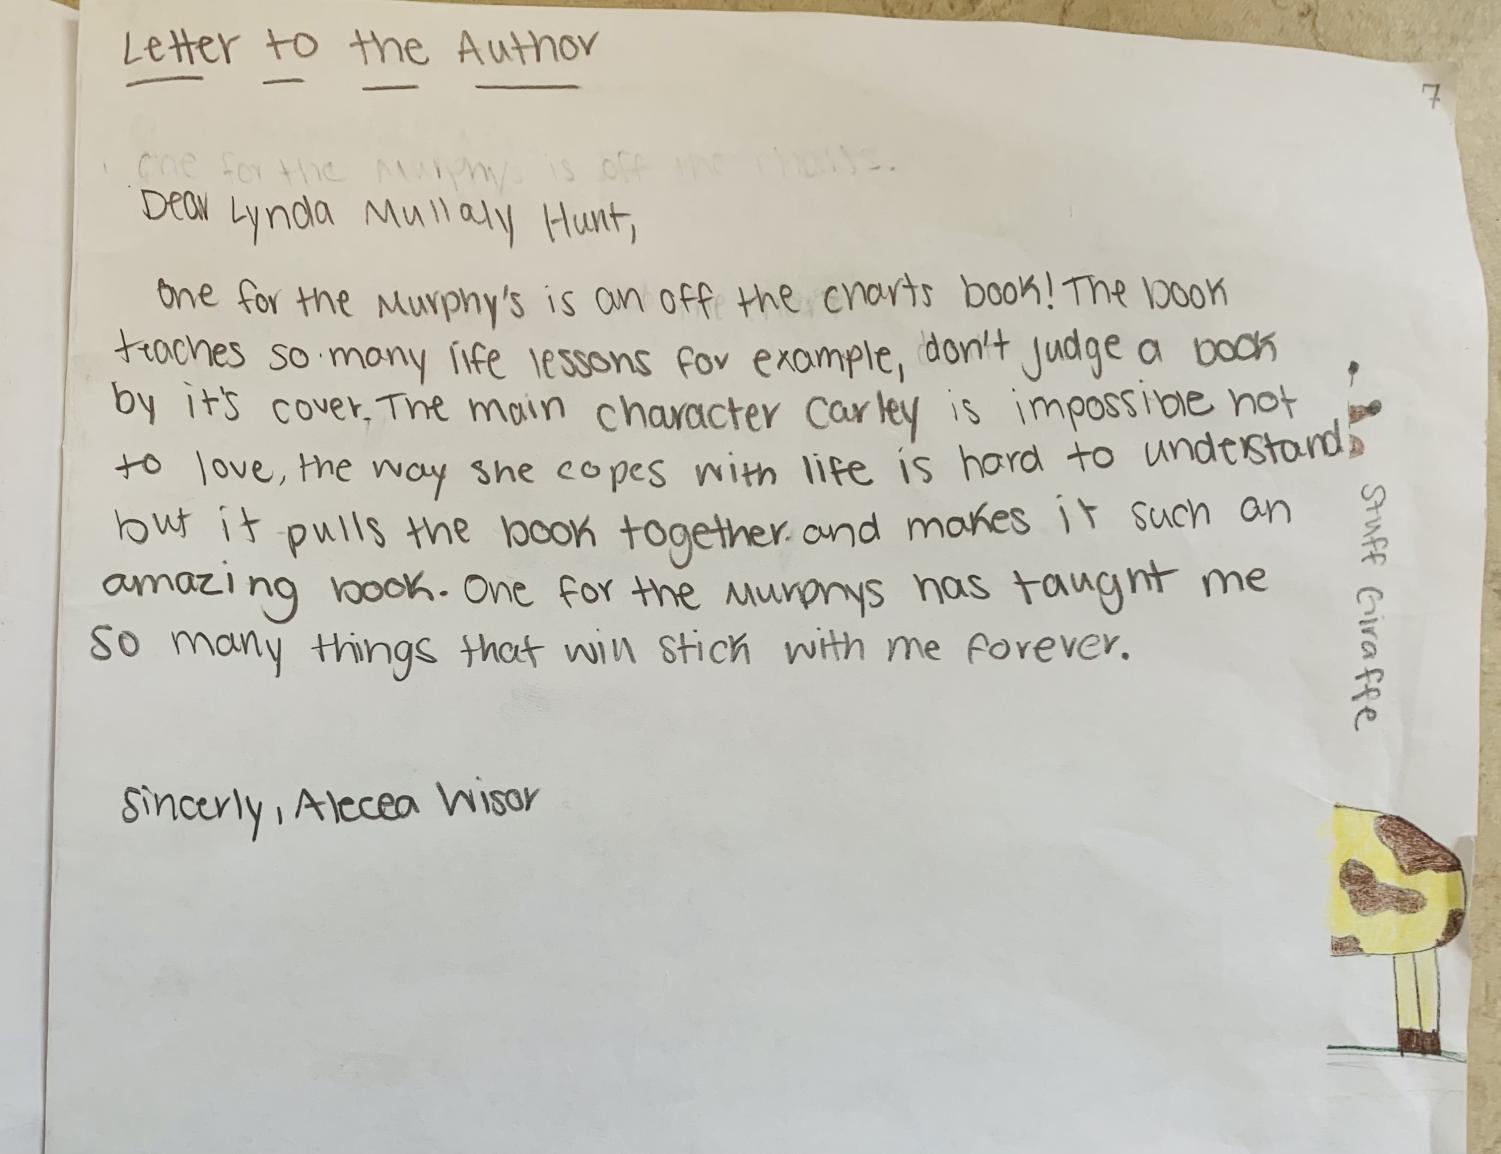 Letter to the Author
7
One for the Murphys is off the charts.
Dear Lynda Mullaly Hunt,
One for the Murphy's is an off the charts book! The book
teaches so many life lessons for example, don't judge a book
by it's cover. The main character Carley is impossible not
to love, the way she copes with life is hard to understand
but it pulls the book together and makes it such an
amazing book. One for the Murphys has taught me
so many things that will stick with me forever.
Sincerly, Alecea Wisor
Stuff Giraffe